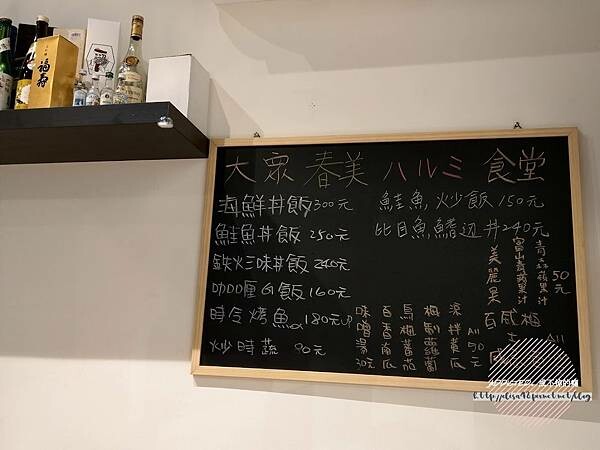 福寿
大衆 春美 ハルミ 食堂
海鮮丼飯300元
鮭魚丼飯 250元
鉄火三味丼飯 240元
咖哩飯 160元
時令烤魚 180元
炒時蔬 90元
鮭魚炒飯 150元
比目魚鰭辺丼240元
味噌湯 30元
百香南瓜
烏梅蕃茄
梅製蘿蔔
涼拌黄瓜
All 50元
青森蘋果汁
富山青蘋果汁
50元
美麗果
百感梅
All
ADDICTED. 戒不掉的癮